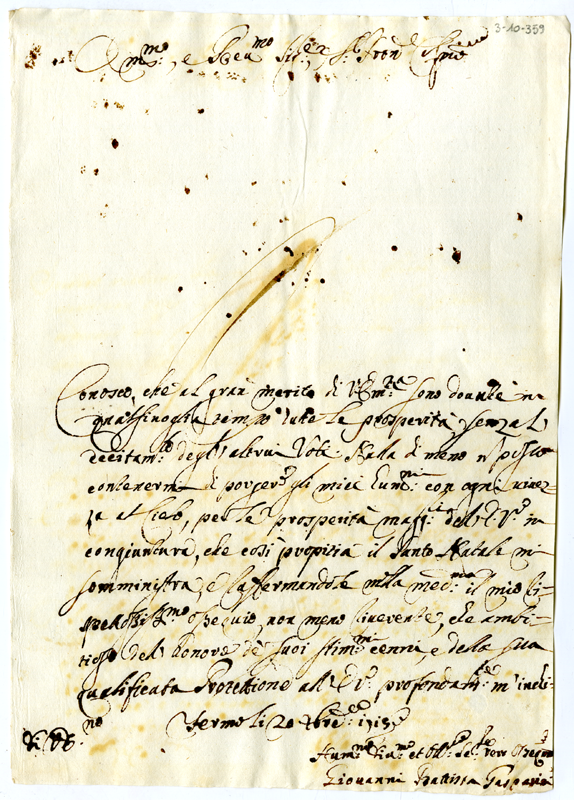 3-10-359
Em.mo, e Reu.mo Sig.r, S.r Pron Colmo
Conosco, che al gran merito di V. Em.za sono douute in
qualsiuoglia tempo tutte le prosperità senza l'
eccitam.to degl'altrui Voti. Nulla di meno n posso
contenermi di porger gli miei hum.mi con ogni uiuez-
za al Cielo, per le prosperità magg.ri dell' E. V. in
congiuntura, che così propitia il Santo Natale mi
somministra, e raffermandole nella med.ma il mio ri-
spettosiss.mo ossequio, non meno riuerente, che ambi-
tioso dell' honore de suoi stim.mi cenni, e della sua
qualificata Protettione all' E. V. profondam.te m'inchi-
no
Termoli 20 Xbre 1713
Di V. E.
Hum.mo Diu.mo et Obl.mo se.re vero Osseq.mo
Giovanni Battista Gaspari